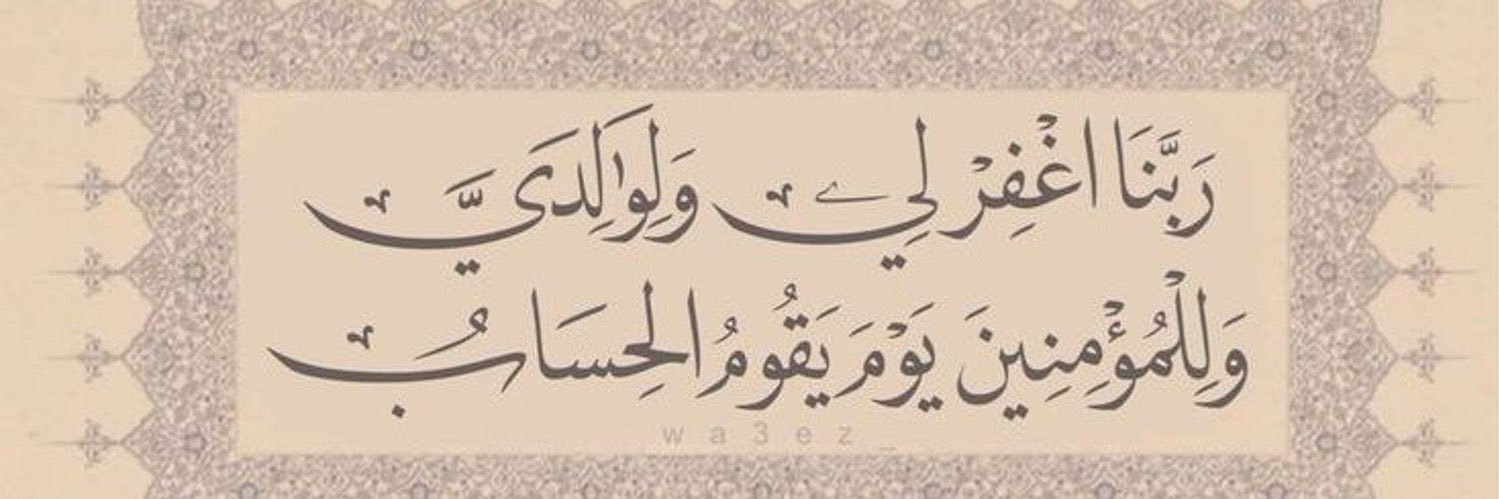 رَبَّنَا اغْفِرْ لِي وَلِوَالِدَيَّ
وَلِلْمُؤْمِنِينَ يَوْمَ يَقُومُ الْحِسَابُ
wa3ez_